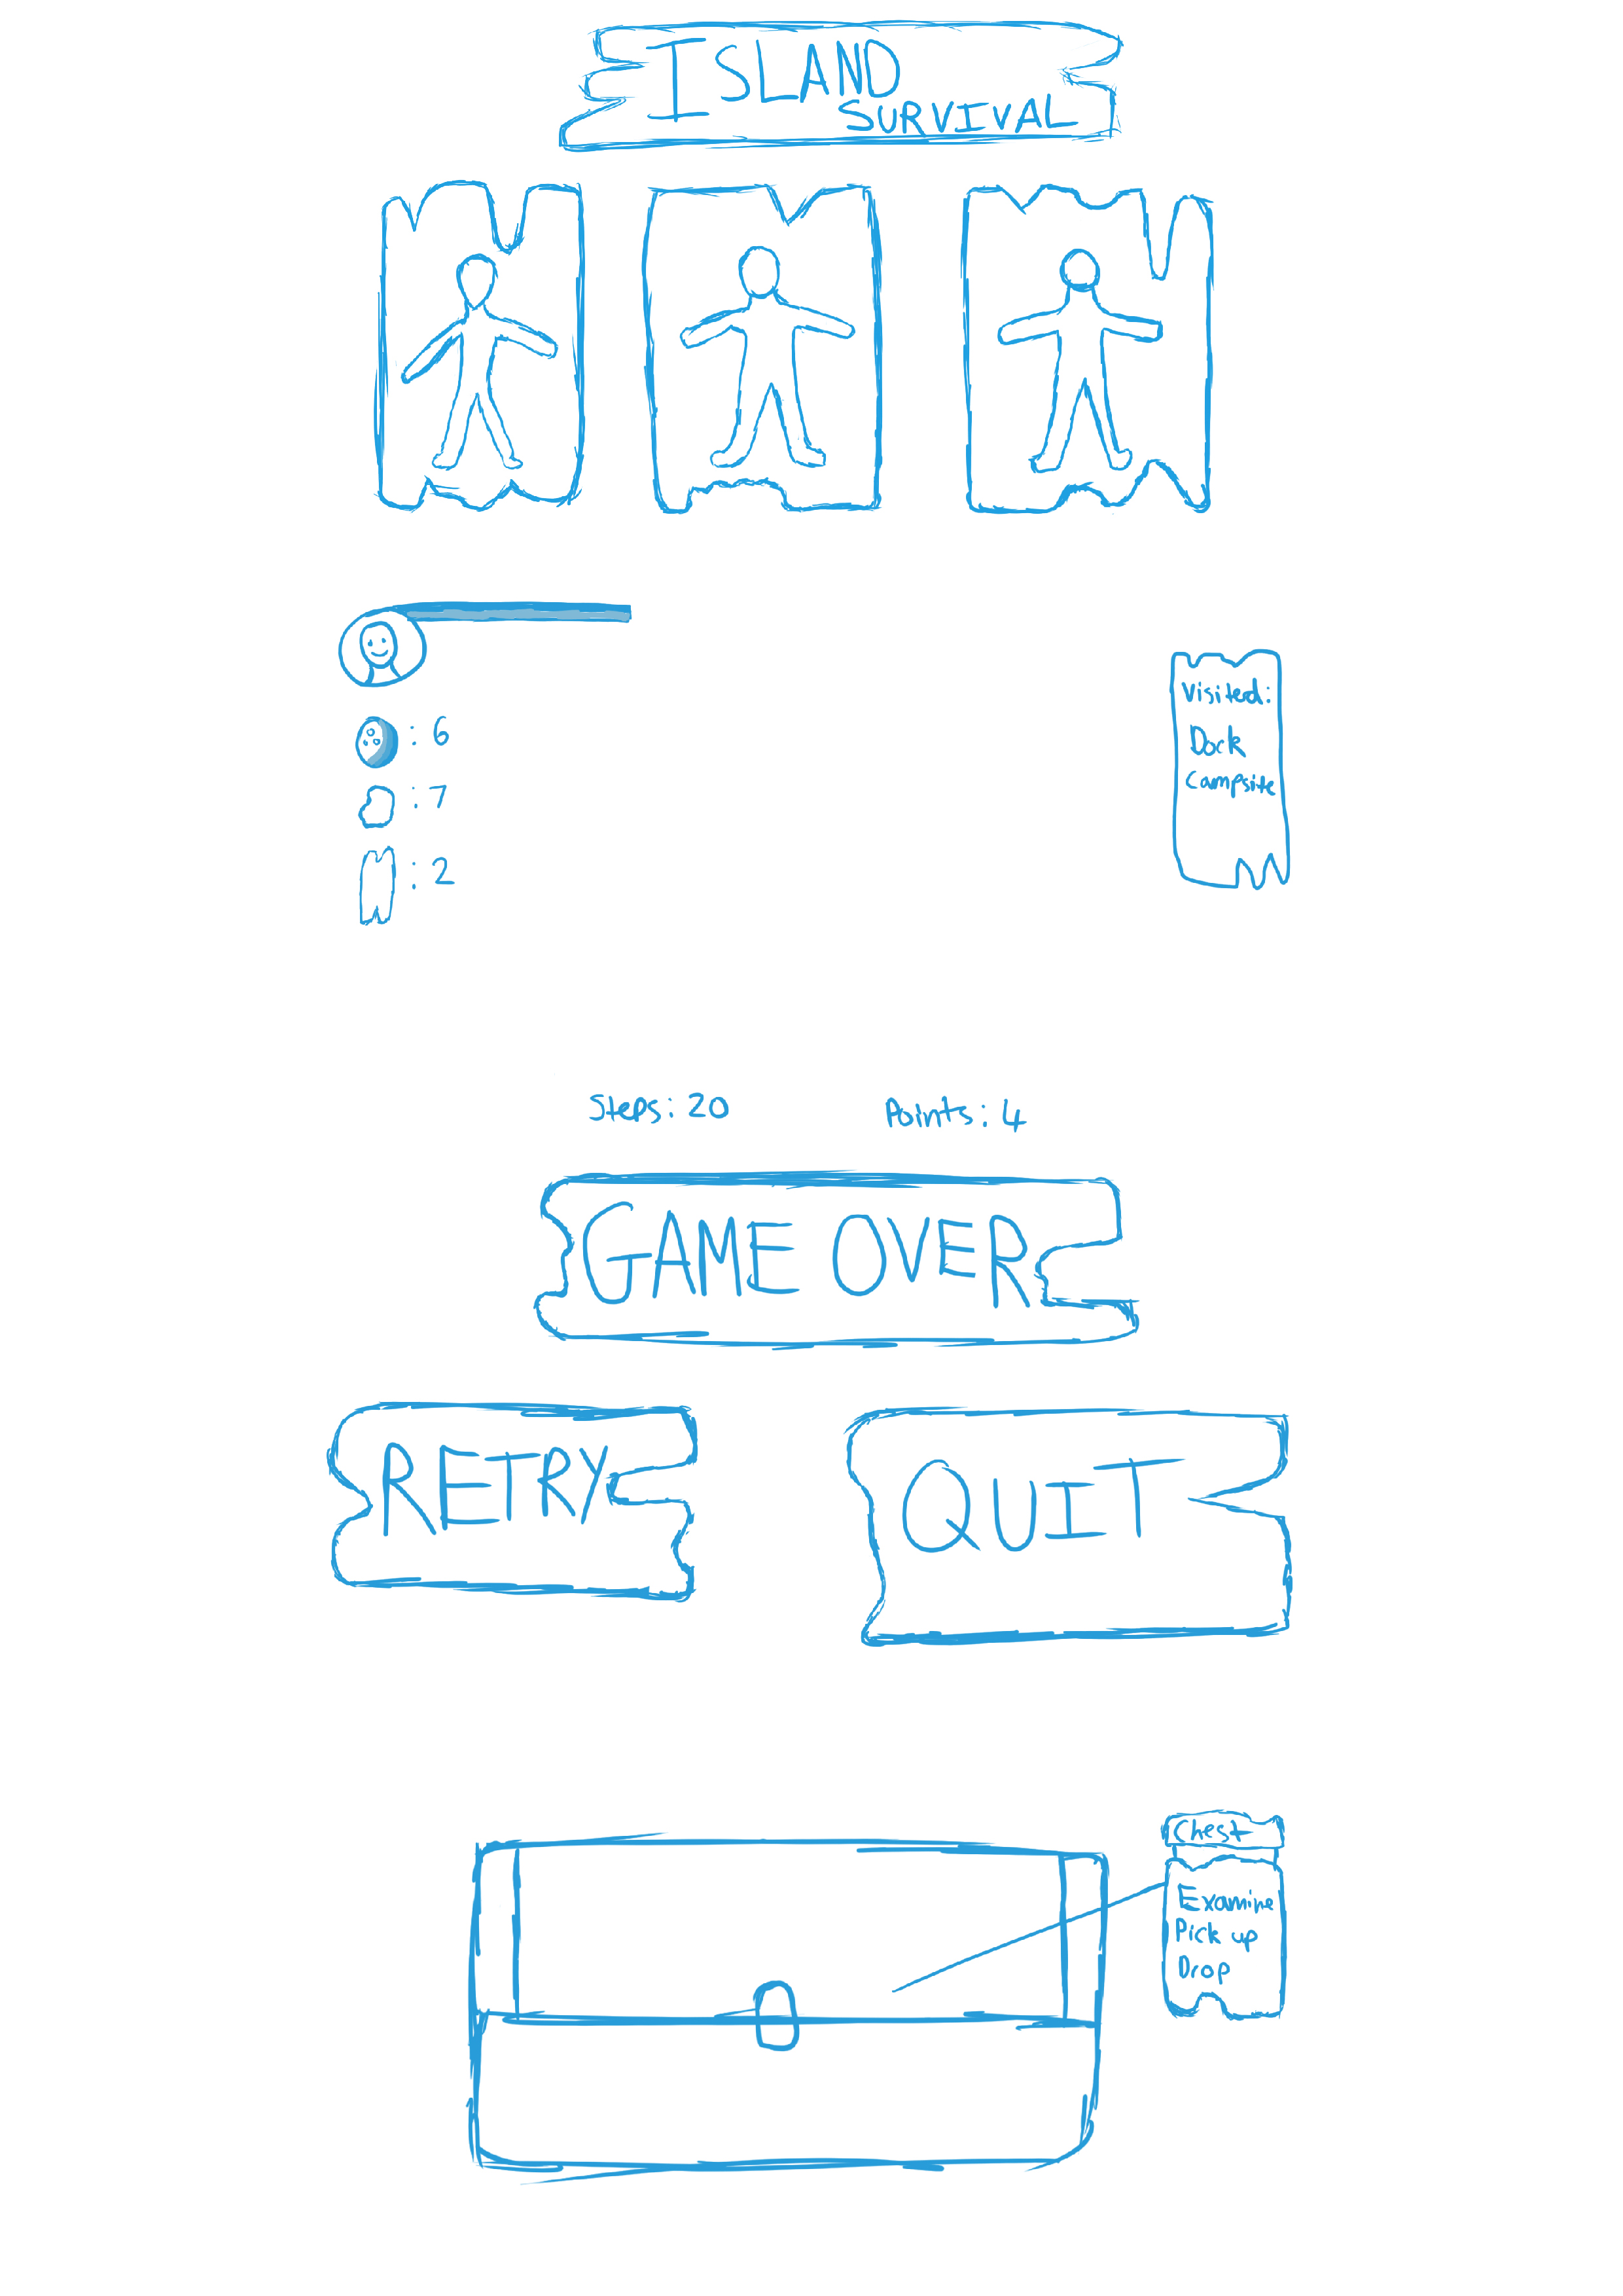 ISLAND
SURVIVAL
: 6
: 7
: 2
Visited:
Dock
Campsite
Steps: 20 Points: 4
GAME OVER
RETRY
QUIT
Chest
Examine
Pick up
Drop